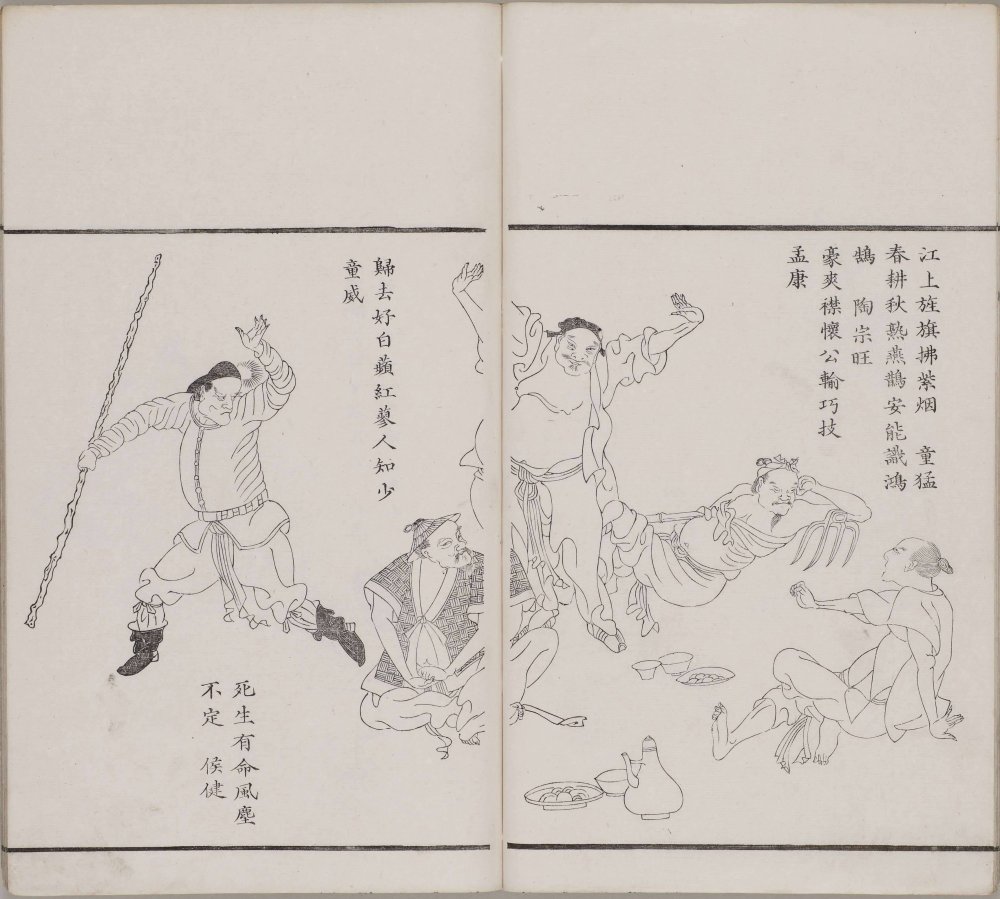 江上旌旗拂紫烟　童猛
春耕秋熟燕鵲安能識鴻
鵠　陶宗旺
豪爽襟懷公輸巧技
孟康
歸去好白蘋紅蓼人知少
童威
死生有命風塵
不定　侯健